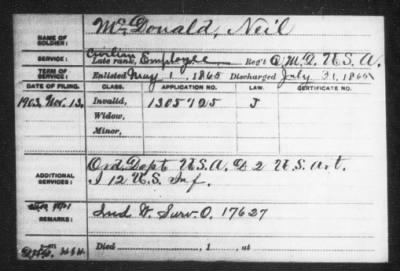 NAME OF SOLDIER: McDonald, Neil
SERVICE: Civilian Late rank, Employee Reg't Q M D, U.S.A.
TERM OF SERVICE: Enlisted May 1, 1865 Discharged July 31, 1865
DATE OF FILING. CLASS. APPLICATION NO. LAW. CERTIFICATE NO.
1903, Nov. 13, Invalid, 1305725 J
Widow,
Minor,
ADDITIONAL SERVICES: Ord. Dept U.S.A. & D 2 U.S. Art.
I 12 U.S. Inf.
REMARKS: Ind W. Surv. O. 17627
Died , 1 , at